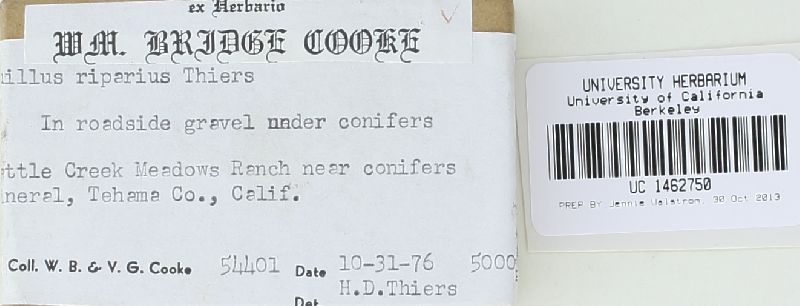 ex Herbario
WM. BRIDGE COOKE
illus riparius Thiers
In roadside gravel under conifers
ttle Creek Meadows Ranch near conifers
neral, Tehama Co., Calif.
Coll. W. B. & V. G. Cooke 54401 Date 10-31-76 5000
H.D.Thiers
Det
UNIVERSITY HERBARIUM
University of California
Berkeley
UC 1462750
PREP BY Jennie Walstrom, 30 Oct 2013